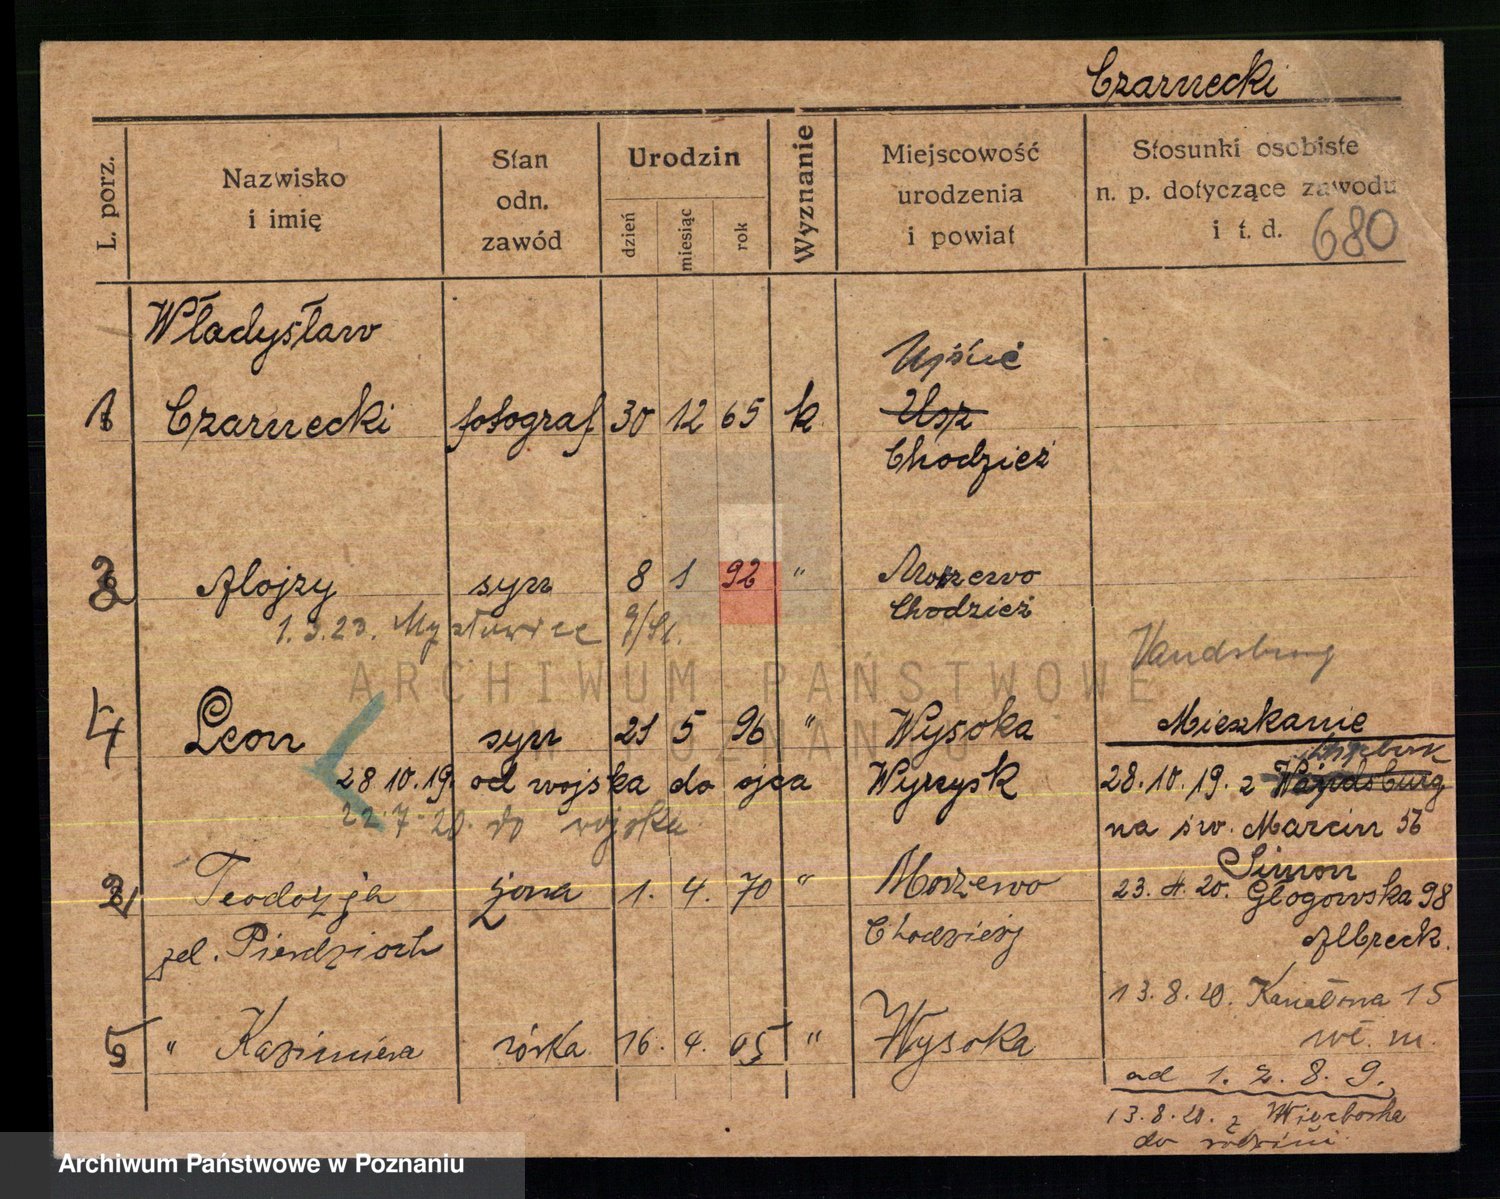 Czarnecki
L. porz.
Nazwisko
i imię
Stan
odn.
zawód
Urodzin
dzień
miesiąc
rok
Wyznanie
Miejscowość
urodzenia
i powiat
Stosunki osobiste
n. p. dotyczące zawodu
i t. d.
680
Władysław
Ujście
1 Czarnecki fotograf 30 12 65 k Usz
Chodzież
Alojzy syn 8 1 92 " Morzewo
Chodzież
1.3.23. Mysłowice g/Śl.
Vandsburg
4 Leon syn 21 5 96 " Wysoka
Mieszkanie
28.10.19. od wojska do ojca Wyrzysk
28.10.19. z Wandsburg
22.7.20. do wojska
na św. Marcin 56
Simon
2 Teodozja żona 1. 4. 70 " Morzewo
23. 4. 20. Głogowska 98
zel. Pierdzioch Chodzież
Albrecht.
13.8.20. Kanałowa 15
5 " Kazimiera córka 16. 4. 05 " Wysoka
wł. m.
ad 1. 2. 8. 9.
13.8.20. z Więcborka
do rodziny
ARCHIWUM PAŃSTWOWE
W POZNANIU
Archiwum Państwowe w Poznaniu